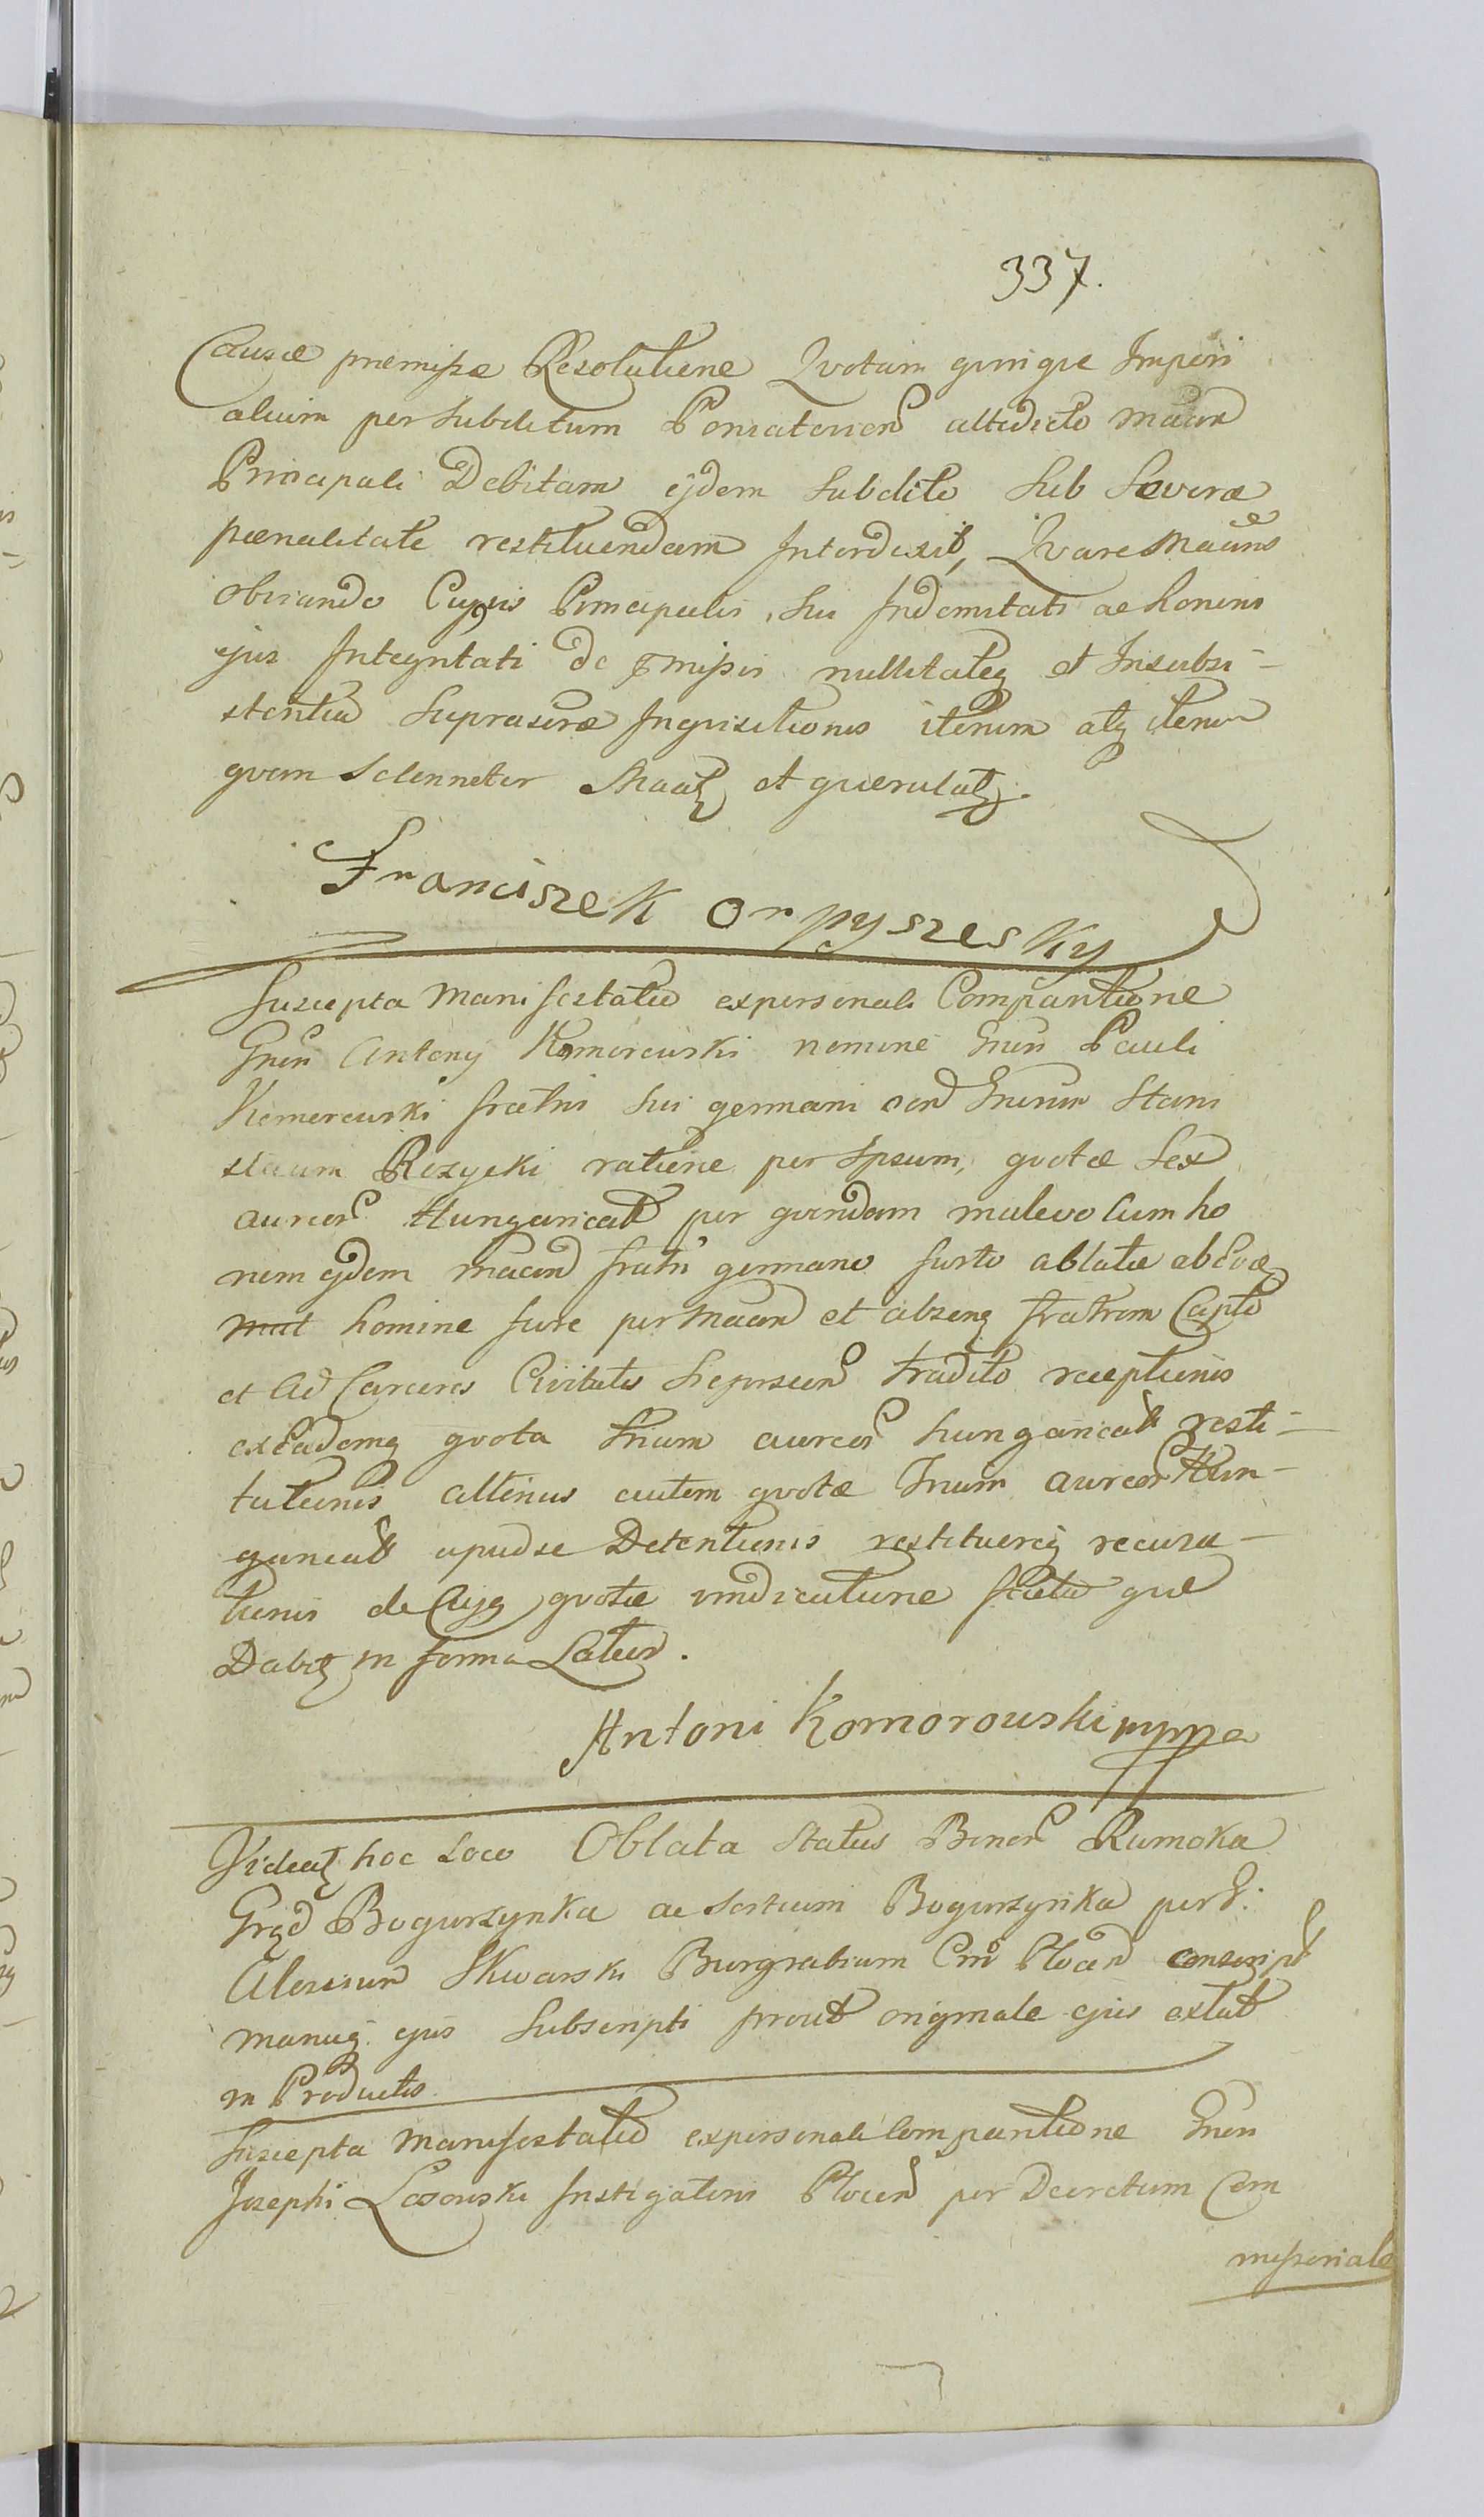 337.
Causæ premissæ Resolutione Qvotam qvinqve Imperi
alium per Subditum Poniatovien altedicto Maan
Principali Debitam ejdem Subdito Sub Severa
pœnalitate restituendam Interdixit, Qvare Maans
obviando Cujsvis Principalis, Sui Indemnitati ac honoris
ejus Integritati de pmissis nullitateq et Insubsi-
stentia Suprascræ Inqvisitionis iterum atq iterum
qvam Solenniter Maatq et qværulatq.
Franciszek Orpyszesky
Suscepta Manifestatio ex personali Comparitione
Gnen Antony Komorowski nomine Gnen Pauli
Komorowski fratris Sui germani con Gnerum Stani
slaum Rozycki ratione per Ipsum, qvotæ Sex
aureor Hungaricalt per qvendam malevolum ho
nem ejdem Maand fratri germano furto ablatæ ab Eoq
homine fure per Maan et absenq fratrem Capto
et ad Carceres Civitatis Sieprscen tradito receptionis
exEademq qvota Trium aureor hungaricalt resti-
tutionis alterius autem qvotæ Trium aureor Hun-
garicalt apud se Detentionis restituereq recusa-
tionis de Cujq qvotæ vindicatione facta qvæ
Dabit in forma Latior.
Antoni Komorouski mppa
Videatq hoc Loco Oblata Status Bonor Rumoka
Grąd Bogurzynka ac Sortium Bogurzynka per G:
Aloysium Skwarski Burgrabium Cm Plocen conscript
manuq ejus Subscripti prout originale ejus extat
in Productis
Suscepta Manifestatio ex personali Comparitione Gnen
Josephi Lasowski Instigatoris Plocen per Decretum Com
missoriale